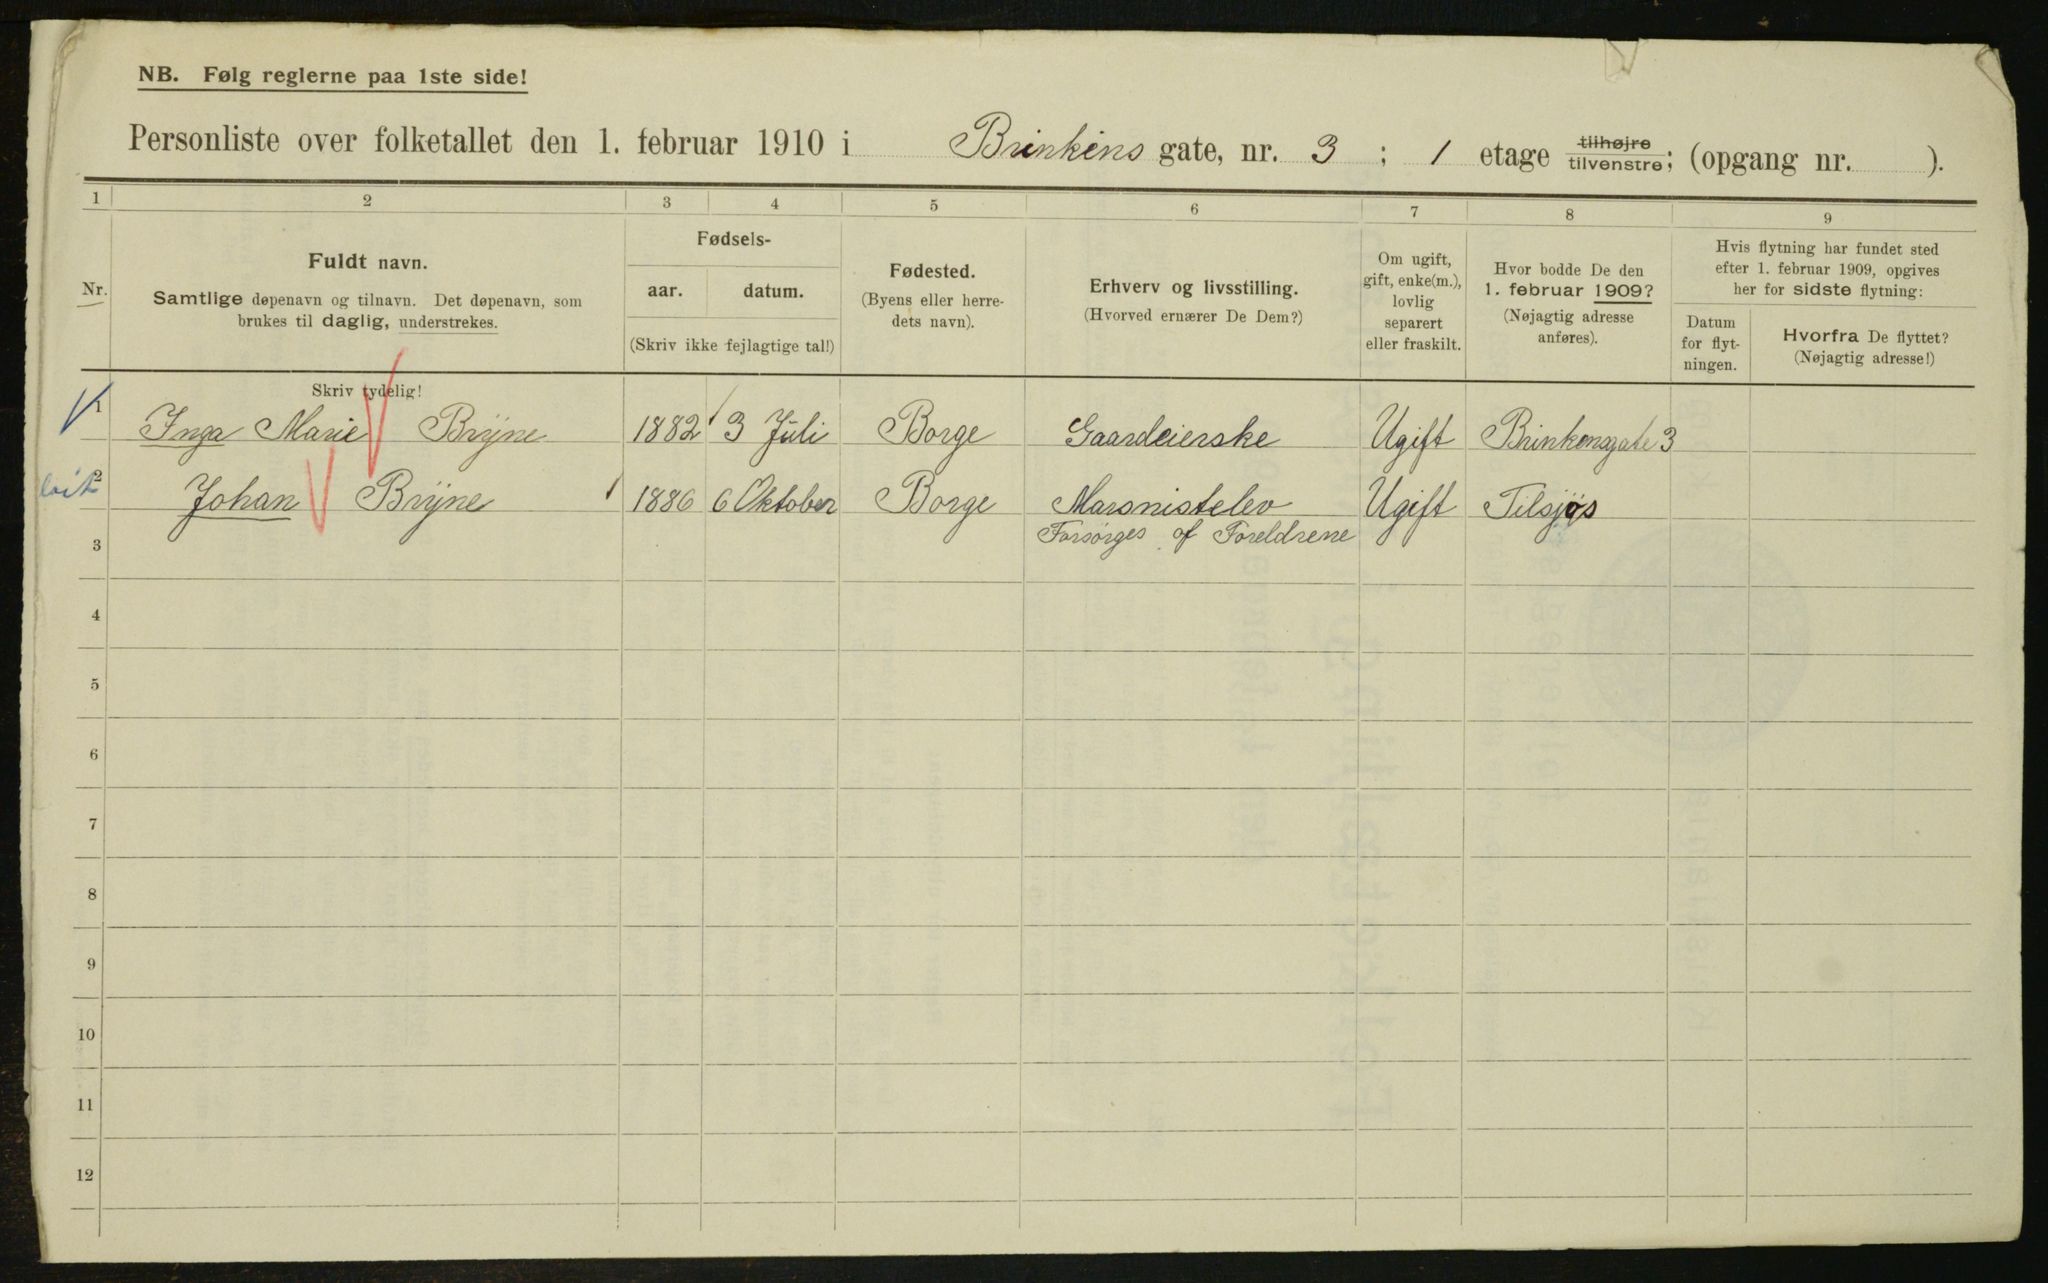 NB. Følg reglerne paa 1ste side!
Personliste over folketallet den 1. februar 1910 i Brinkens gate, nr. 3 ; 1 etage tilhøjre tilvenstre; (opgang nr. ).
1 2 3 4 5 6 7 8 9
Nr.
Fuldt navn.
Samtlige døpenavn og tilnavn. Det døpenavn, som
brukes til daglig, understrekes.
Fødsels-
aar. datum.
(Skriv ikke fejlagtige tal!)
Fødested.
(Byens eller herre-
dets navn).
Erhverv og livsstilling.
(Hvorved ernærer De Dem?)
Om ugift,
gift, enke(m.),
lovlig
separert
eller fraskilt.
Hvor bodde De den
1. februar 1909?
(Nøjagtig adresse
anføres).
Hvis flytning har fundet sted
efter 1. februar 1909, opgives
her for sidste flytning:
Datum
for flyt-
ningen.
Hvorfra De flyttet?
(Nøjagtig adresse!)
Skriv tydelig!
1 Inga Marie Brÿne 1882 3 Juli Borge Gaardeierske Ugift Brinkensgate 3
2 Johan Brÿne 1886 6 Oktober Borge Marsnistelev Ugift Tilsjøs
Forsørges af Foreldrene
3
4
5
6
7
8
9
10
11
12